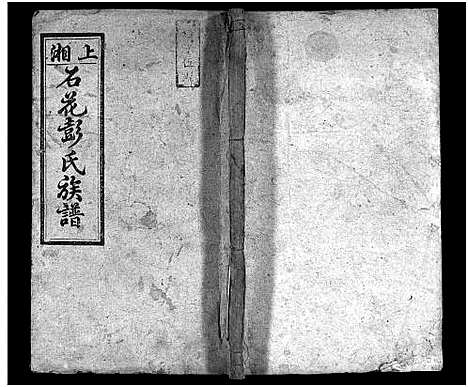 上湘
石花彭氏族譜